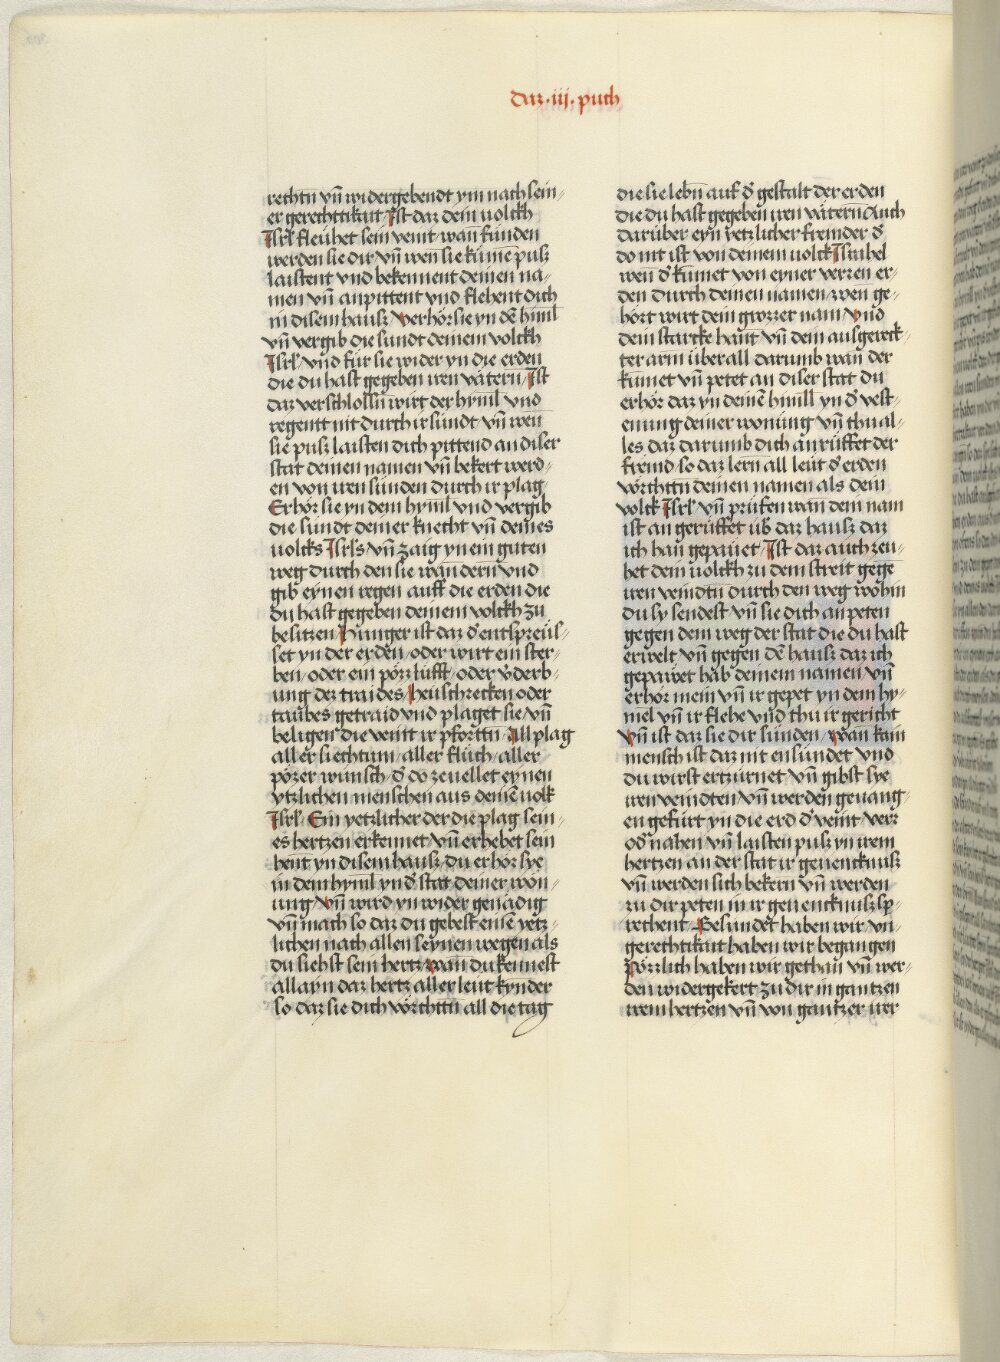 daz .iij. puch
rechtn vn̄ widergebendt ym nach sein⸗
er gerechttikait Ist daz dein uolckh
Isrl̄ fleühet sein veint wan̄ fünden
werden sie dir vn̄ wen sie küme pusz
laistent vnd bekennent deinen na⸗
men vn̄ anpittent vnd flehent dich
in disem hausz verhör sie yn dē himl̄
vn̄ vergib die sundt deinem volckh
Isrl̄ vnd für sie wider yn die erden
die du hast gegeben iren vätern Ist
daz verschlossn̄ wirt der hyml̄ vnd
regentt nit durch ir sündt vn̄ wen̄
sie pusz laisten dich pittend an diser
stat deinen namen vn̄ bekert werd⸗
en von iren sünden durch ir plag
Erhör sie yn dem hyml̄ vnd vergib
die sündt deiner knecht vn̄ deines
uolcks Isrl̄s vn̄ zaig yn ein guten
weg durch den sie wandern vnd
gib eynen regen auff die erden die
du hast gegeben deinem volckh zu
besitzen Hunger ist daz d' entspreüs⸗
set yn der erden oder wirt ein ster⸗
ben oder ein pörz lüfft oder v'derb⸗
ung dez traides heüschrecken oder
taubes getraid vnd plaget sie vn̄
beligen die veint ir pforttn̄ All plag
aller siechtum aller fluch aller
pözer wunsch d' do zeuellet eynen
ytzlichen menschen aus deinē uolk
Isrl̄ Ein yetzlicher der die plag sein⸗
es hertzen erkennet vn̄ erhebet sein
hent yn disem hausz du erhör sye
in dem hyml̄ yn d' stat deiner won⸗
ung vn̄ wird yn wider genädig
vn̄ mach so daz du gebest ensē yetz⸗
lichen nach allen seynen wegen als
du siehst sein hertz wan̄ du kennest
allayn daz hertz aller leüt kynder
so daz sie dich vörchttn̄ all die tag
die sie lebn̄ auf d' gestalt der erden
die du hast gegeben iren vätern Auch
darüber eyn yetzlicher fremder d'
do nit ist von deinem uolck Israhel
wen̄ d' kümet von eyner verren er⸗
den durch deinen namen wen ge⸗
hört wirt dein grozzer nam vnd
dein starcke hant vn̄ dein ausgereck⸗
ter arm überall darumb wan̄ der
kümet vn̄ petet an diser stat du
erhör daz yn deinē himll yn d' vest⸗
enung deiner wonung vn̄ thu al⸗
les daz darumb dich anrüffet der
fremd so daz lern all leüt d' erden
vörchttn̄ deinen namen als dein
volck Isrl̄ vn̄ prüfen wan̄ dein nam
ist an gerüffet üb' daz hausz daz
ich han gepauet Ist daz auch zeü⸗
het dein uolckh zu dem streit gegē
iren veindtn̄ durch den weg wohin
du sy sendest vn̄ sie dich an peten
gegen dem weg der stat die du hast
erwelt vn̄ gegen dē hausz daz ich
gepawet hab deinem namen vn̄
erhör mein vn̄ ir gepet yn dem hy⸗
mel vn̄ ir flehe vnd thu ir gericht
Vn̄ ist daz sie dir sünden wan̄ kain
mensch ist daz nit en sündet vnd
du wirst erzürnet vn̄ gibst sye
iren veindten vn̄ werden geuang⸗
en gefürt yn die erd d' veint verr
od' nahen vn̄ laisten pusz yn irem
hertzen an der stat ir geuencknusz
vn̄ werden sich bekern vn̄ werden
zu dir peten in ir geuencknusz sp̄⸗
rechent Gesündet haben wir vn⸗
gerechtikait haben wir begangen
Pözzlich haben wir gethan vn̄ wer⸗
den widergekert zu dir in gantzen
irem hertzen vn̄ von gantzer irer